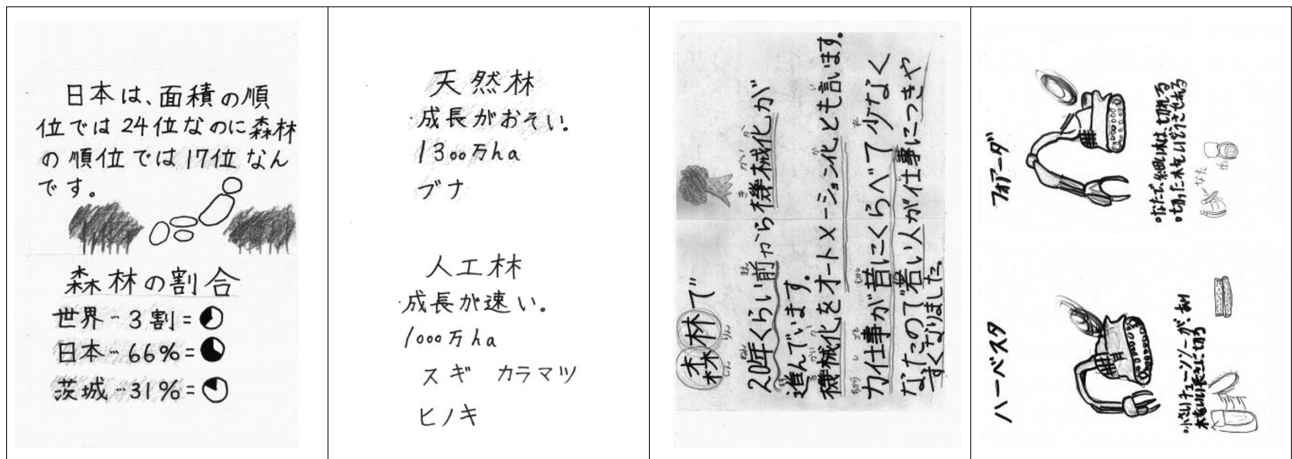 日本は、面積の順
位では24位なのに森林
の順位では17位なん
です。
森林の割合
世界…3割=
日本…66%=
茨城…31%=
天然林
成長がおそい.
1300万ha
ブナ
人工林
成長が速い。
1000万ha
スギ カラマツ
ヒノキ
森林で
しん りん
20年くらい前から機械化が
進んでいます.
機械化をオートメーション化とも言います.
力仕事が昔にくらべて少なく
なたので若い人が仕事につきや
すくなりました
フォアーダ
ハーベスタ